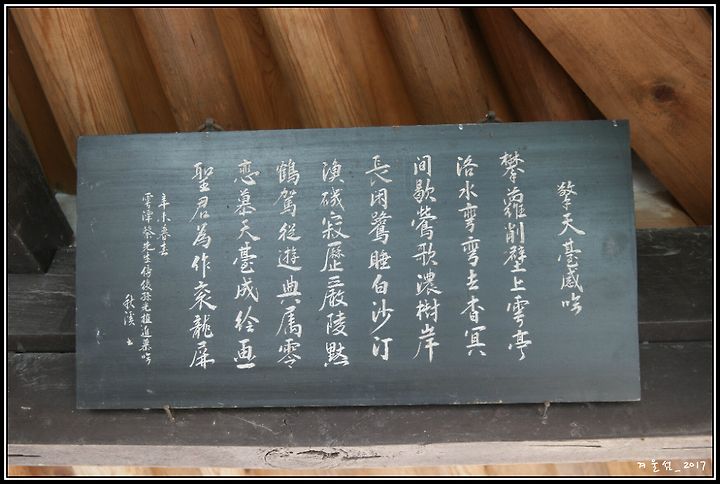 擎天臺感吟
攀蘿削壁上雲亭
洛水彎彎去杳冥
間歇鶯歌濃樹岸
長閑鷺睡白沙汀
漁磯寂歷嚴陵黙
鶴駕從遊典属零
戀慕天臺成绘画
聖君為作衮龍屛
辛未暮春
雲潭蔡先生傍後孫光植追慕吟
秋溪
겨울섬_2017